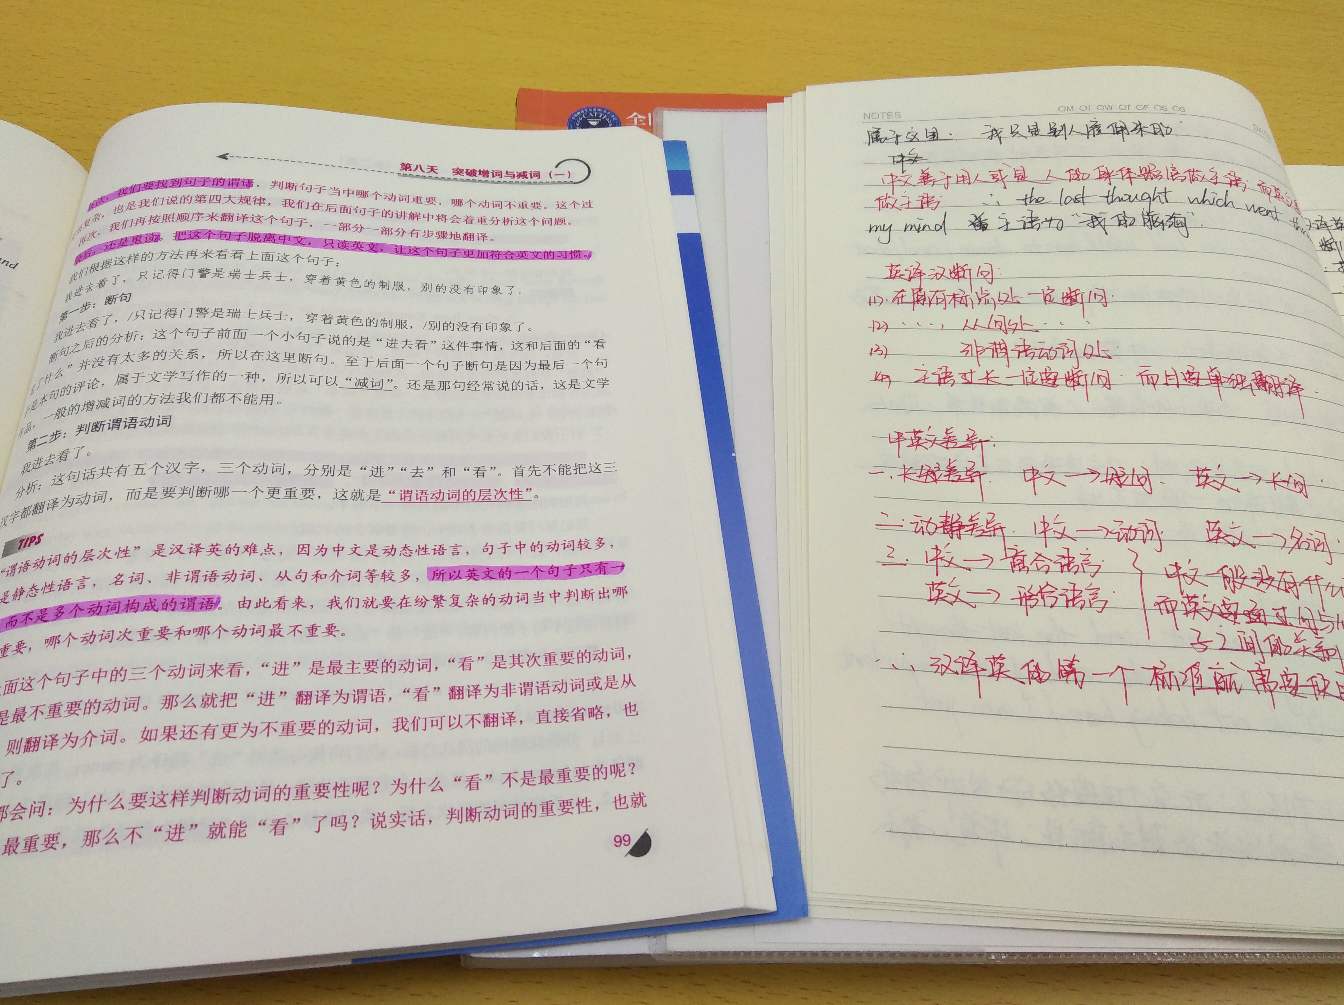 第八天 突破增词与减词（一）
我们要找到句子的谓语，判断句子当中哪个动词重要，哪个动词不重要。这个过
复杂，也是我们说的第四大规律，我们在后面句子的讲解中将会着重分析这个问题。
再次，我们再按照顺序来翻译这个句子，一部分一部分有步骤地翻译。
最后，还是重读。把这个句子脱离中文，只读英文，让这个句子更加符合英文的习惯。
我们根据这样的方法再来看看上面这个句子：
我进去看了，只记得门警是瑞士兵士，穿着黄色的制服，别的没有印象了。
第一步：断句
我进去看了，/只记得门警是瑞士兵士，穿着黄色的制服，/别的没有印象了。
断句之后的分析：这个句子前面一个小句子说的是“进去看”这件事情，这和后面的“看
了什么”并没有太多的关系，所以在这里断句。至于后面一个句子断句是因为最后一个句
是本句的评论，属于文学写作的一种，所以可以“减词”。还是那句经常说的话，这是文学
品，一般的增减词的方法我们都不能用。
第二步：判断谓语动词
我进去看了。
分析：这句话共有五个汉字，三个动词，分别是“进”“去”和“看”。首先不能把这三
汉字都翻译为动词，而是要判断哪一个更重要，这就是“谓语动词的层次性”。
TIPS
“谓语动词的层次性”是汉译英的难点，因为中文是动态性语言，句子中的动词较多，
是静态性语言，名词、非谓语动词、从句和介词等较多，所以英文的一个句子只有一
而不是多个动词构成的谓语。由此看来，我们就要在纷繁复杂的动词当中判断出哪
重要，哪个动词次重要和哪个动词最不重要。
面这个句子中的三个动词来看，“进”是最主要的动词，“看”是其次重要的动词，
是最不重要的动词。那么就把“进”翻译为谓语，“看”翻译为非谓语动词或是从
则翻译为介词。如果还有更为不重要的动词，我们可以不翻译，直接省略，也
了。
都会问：为什么要这样判断动词的重要性呢？为什么“看”不是最重要的呢？
最重要，那么不“进”就能“看”了吗？说实话，判断动词的重要性，也就
99
NOTES
属于这里. 我只是别人雇用来的
中文善于用人或是人的身体器官做主语，而英文
做主语 ∴ the last thought which went th
my mind 主语为“我的脑海”
英译汉断句：
(1) 在原有标点处一定断句.
(2) ····, 从句处 ····
(3) 非谓语动词处
(4) 主语过长一定要断句 而且要单独翻译
中英文差异.
一. 长短差异 中文→短句. 英文→长句.
二. 动静差异. 中文→动词 英文→名词.
三. 中文→意合语言
英文→形合语言.
中文一般没有什么
而英文要通过句与句
子之间的关系
∴ 汉译英的第一个标准就需要